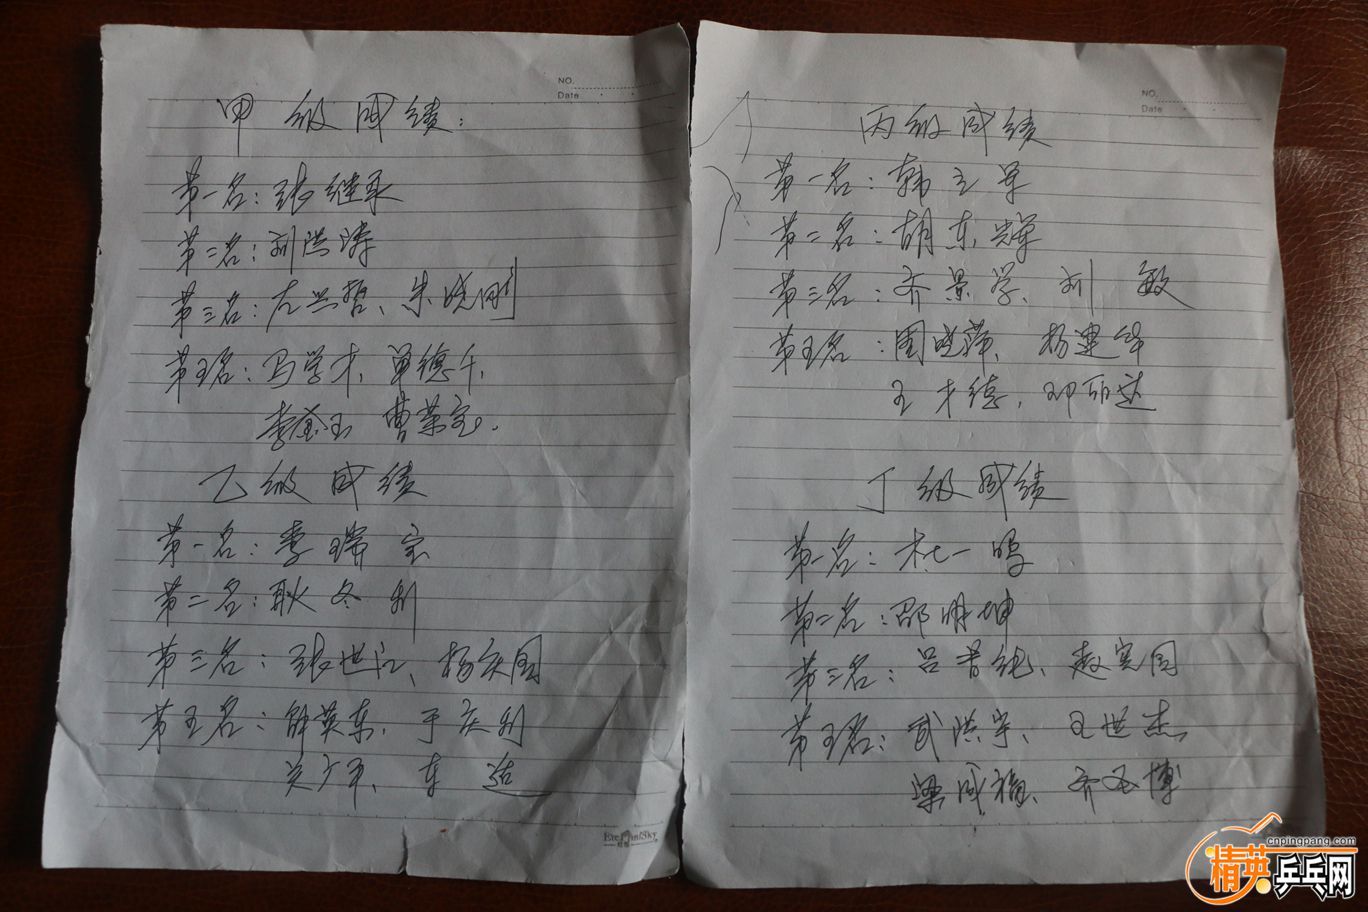 NO.
Date
甲级成绩:
第一名:张继承
第二名:刘洪涛
第三名:左兴哲、朱晓刚
第五名:马学才、单德千、
李金玉 曹荣宝。
乙级成绩
第一名:李瑞宝
第二名:耿冬利
第三名:张世江、杨庆国
第五名:解英东、于庆利
关广平、车
NO.
Date
丙级成绩
第一名:韩立军
第二名:胡东辉
第三名:乔景学、刘敏
第五名:周晓萍、杨建华
王才德、邓
丁级成绩
第一名:杜一鸣
第二名:邵明坤
第三名:吕普纯、赵宪国
第五名:武洪宇、王世杰
梁成福、乔 博
cnpingpang.com
精英乒乓网